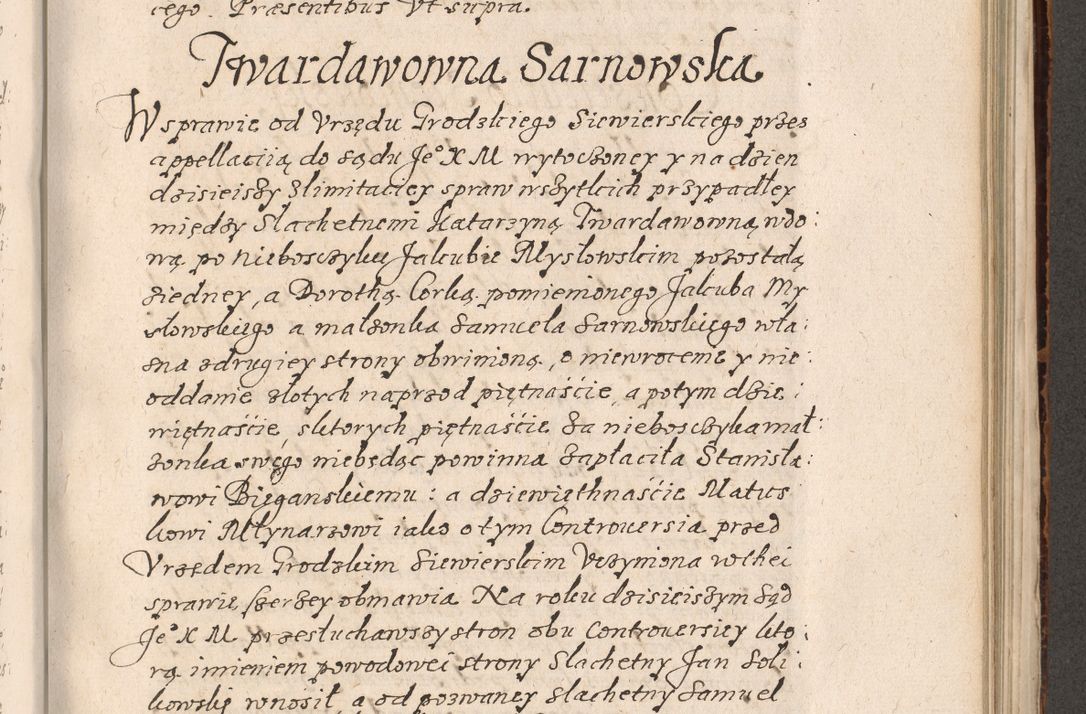 cego Præsentibus Vt supra.
Twardawowna Sarnowska
W sprawie od Vrzędu Grodzkiego Siewierskiego przes
appellaciią do sądu Jeº X M wytoczoney y na dzien
dzisieiszy zlimitaciey spraw wszytkich przypadłey
między Slachetnemi Katarzyną Twardawowną wdo:
wą po nieboszczyku Jakubie Mysłowskim pozostałą
ziedney, a Dorothą Corką pomienionego Jakuba My
słowskiego a małzonka Samuela Sarnowskiego wła:
sna zdrugiey strony obwinioną, o niewrocenie y nie:
oddanie złotych naprzod piętnaście, a potym dzie:
więtnaście, sktorych piętnaście za nieboszczyka mał:
zonka swego niebędąc powinna zapłaciła Stanisła:
wowi Bieganskiemu: a dziewięthnaście Matus
kowi Młynarzowi iako o tym Controuersia przed
Vrzedem Grodzkim Siewierskim Vczyniona w thei
sprawie szerzey obmawia Na roku dzisieiszym Sąd
Jeº X M przesłuchawszy stron obu Controuersiey kto:
rą imieniem powodowei strony Slachetny Jan Soli:
kowski wnosił, a od pozwaney slachetny Samuel